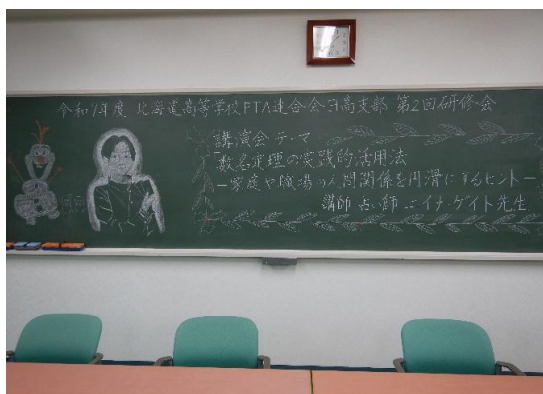 令和1年度 北海道高等学校PTA連合会日高支部 第2回研修会
講演会テーマ
数名定理の実践的活用法
―家庭や職場の人間関係を円滑にするヒント―
講師 占い師 ニイナ・ゲイト先生